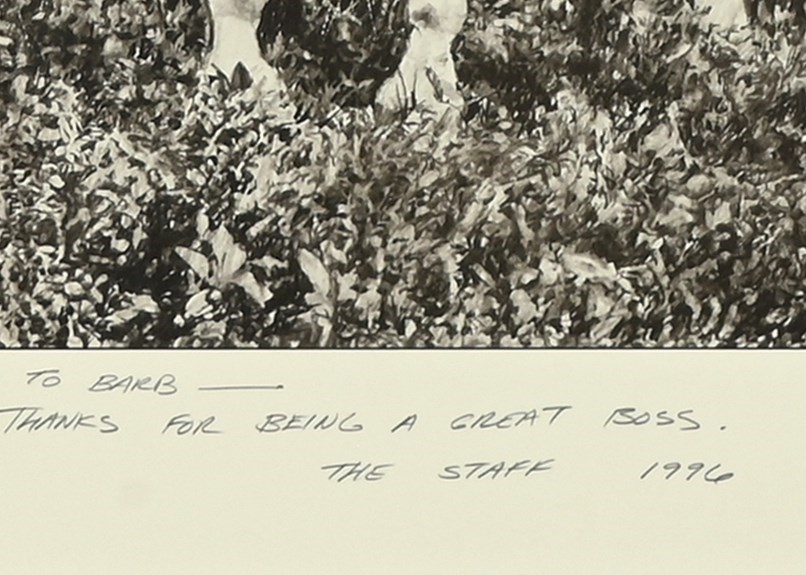 TO BARB —
THANKS FOR BEING A GREAT BOSS.
THE STAFF 1996